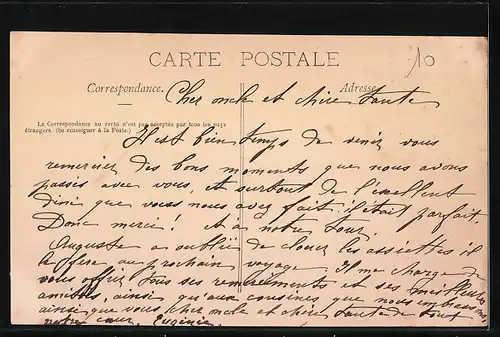 CARTE POSTALE
10
Correspondance. Adresse
Cher oncle et chère tante
La Correspondance au recto n'est pas acceptée par tous les pays
étrangers. (Se renseigner à la Poste.)
Il est bien temps de venir vous
remercier des bons moments que nous avons
passés avec vous, et surtout de l'excellent
diné que vous nous avez fait il était parfait.
Donc merci! et a notre tour.
Auguste a oublié de clouer les assiettes il
le fera au prochain voyage. Il me charge de
vous offrir tous ses remerciments et ses meilleures
amitiés, ainsi qu'aux cousines que nous embrassons
ainsi que vous cher oncle et chère tante de tout
notre cœur. Eugénie.